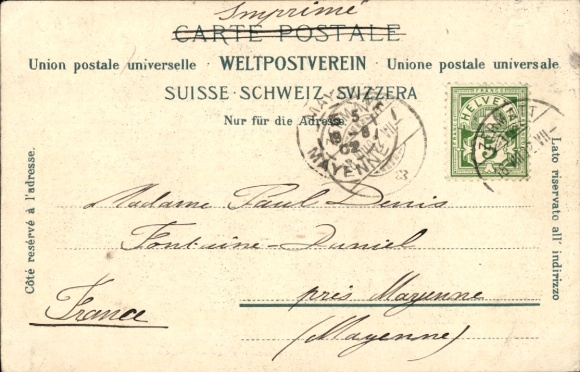 Imprimé
CARTE POSTALE
Union postale universelle · WELTPOSTVEREIN · Unione postale universale
SUISSE · SCHWEIZ · SVIZZERA
Nur für die Adresse.
HELVETIA
FRANCO
5
MAYENNE
5
02
Côté resérvé à l'adresse.
Lato riservato all' indirizzo
Madame Paul Denis
Fontaine-Daniel
près Mayenne
France
(Mayenne)